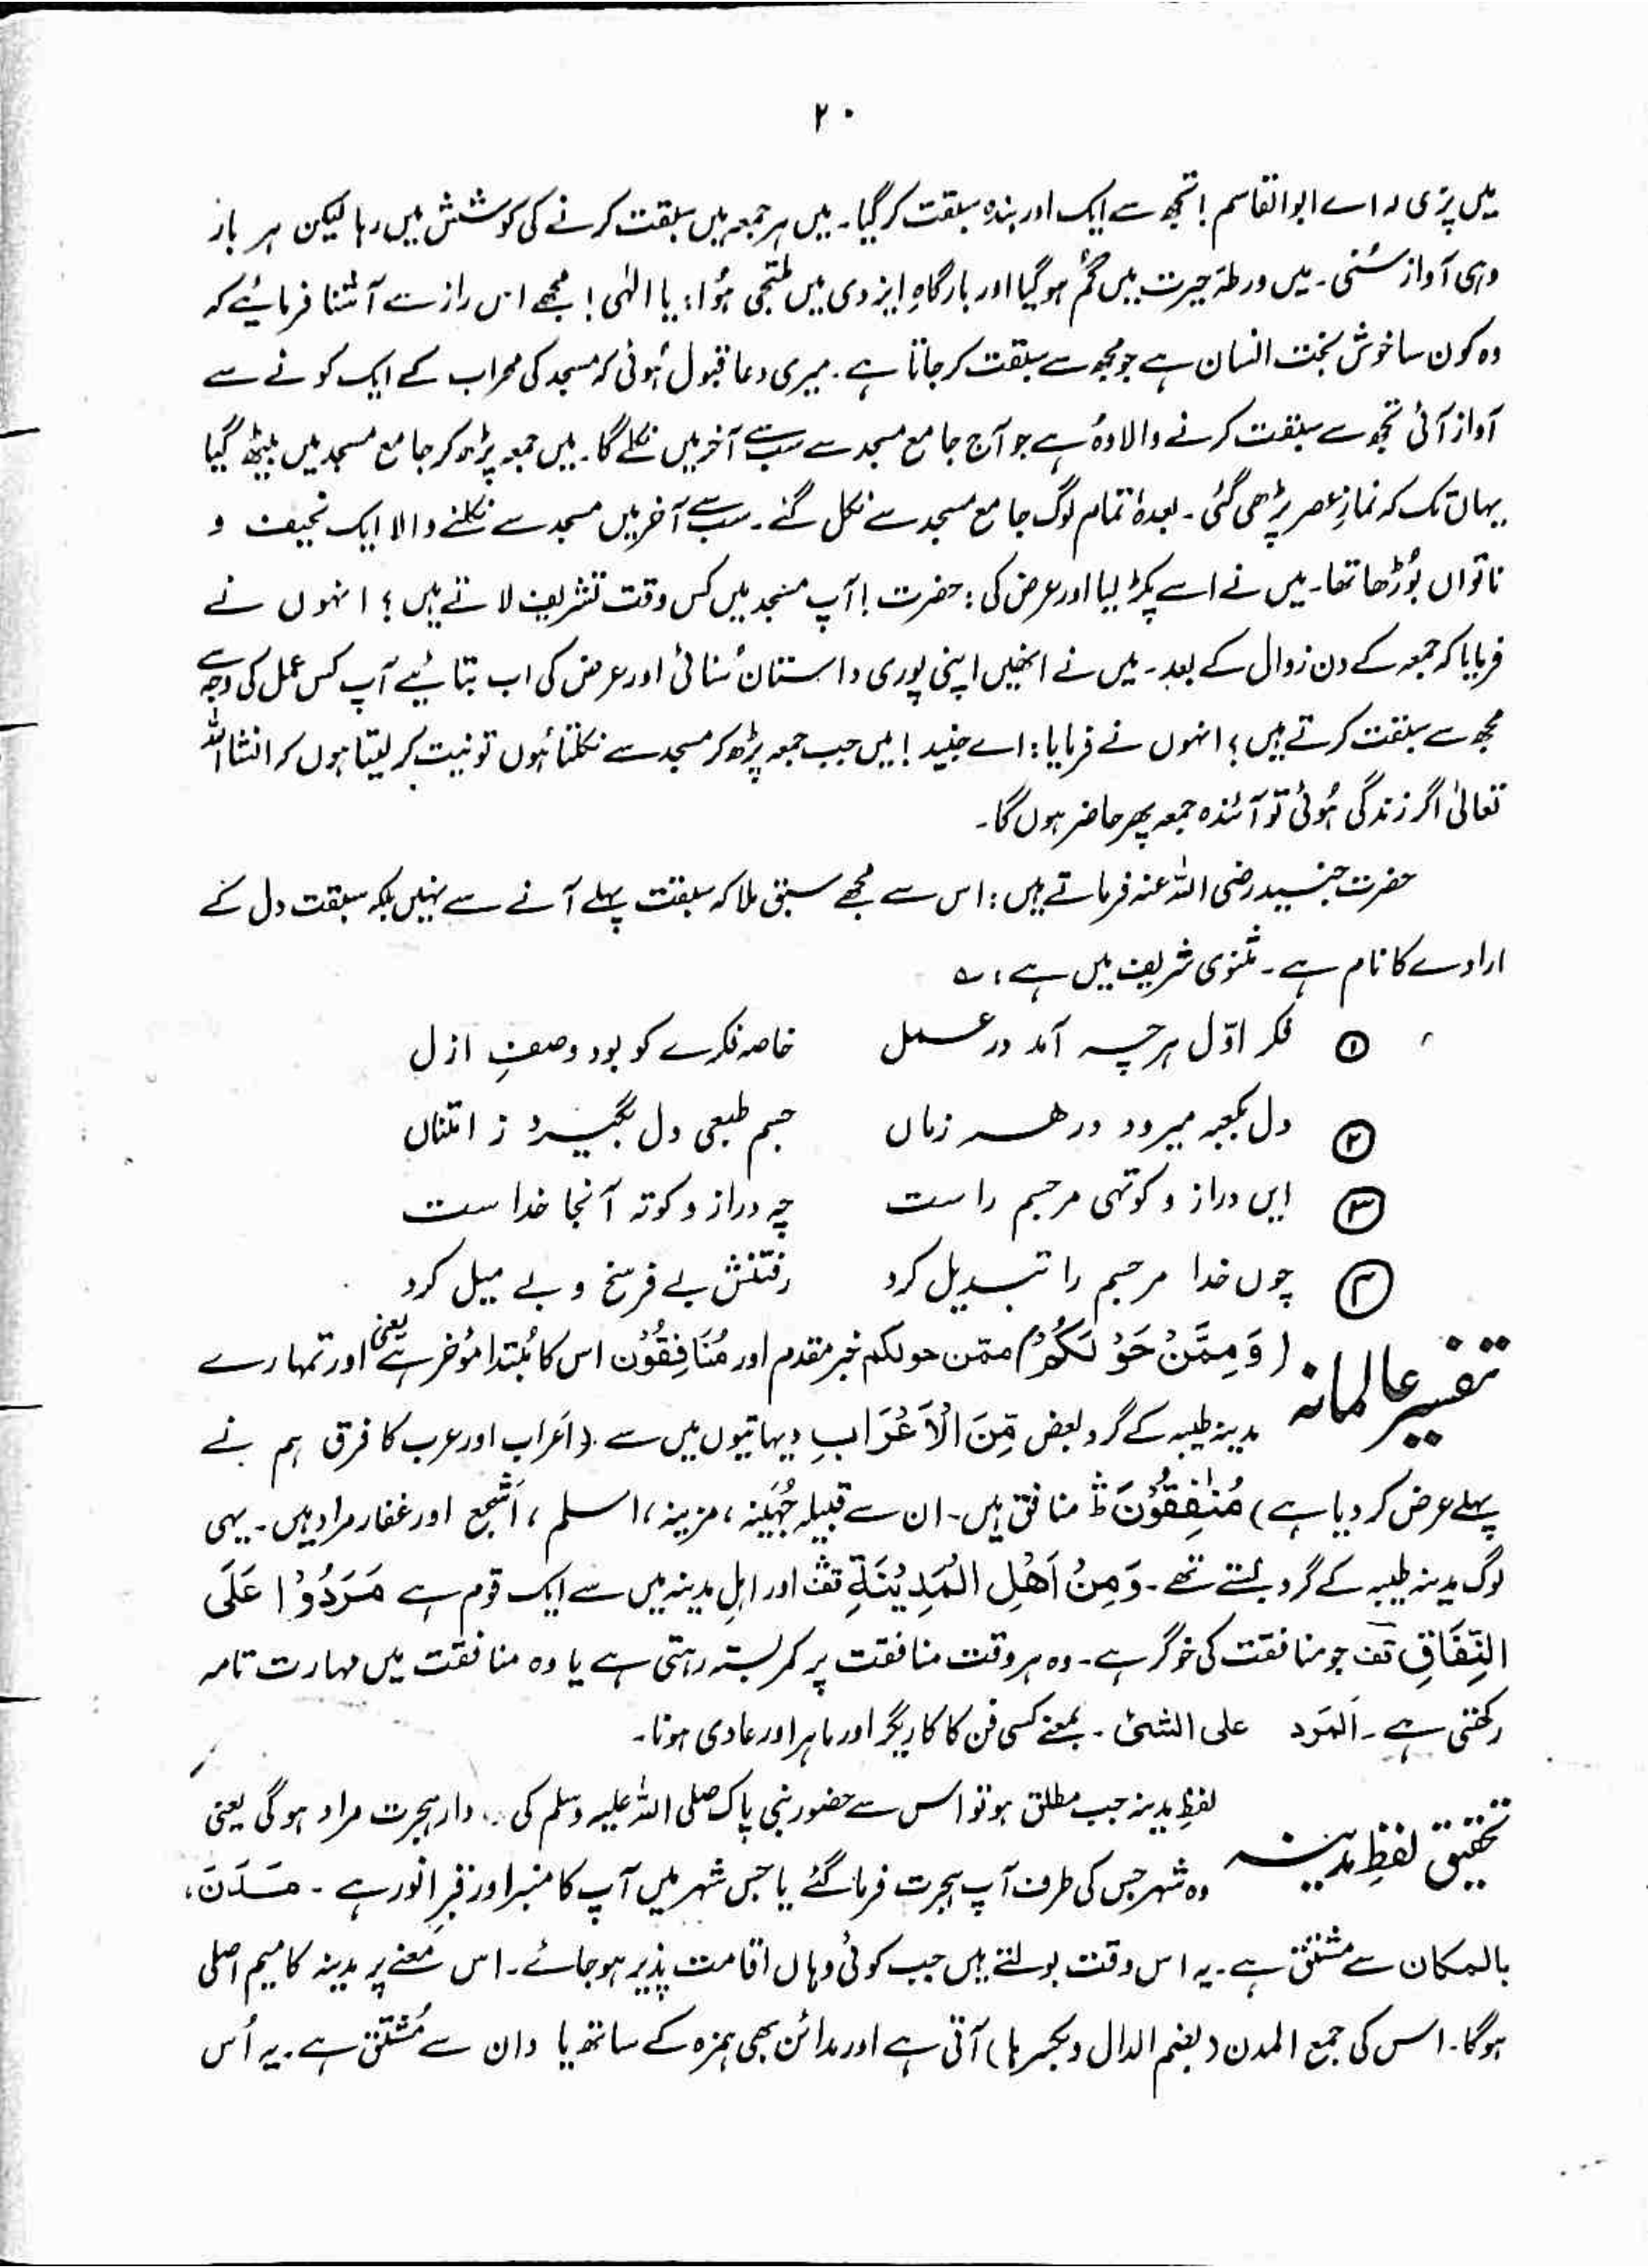 ۲۰
میں پڑی کہ اے ابوالقاسم! تجھ سے ایک اور بندہ سبقت کر گیا۔ میں ہر جمعہ میں سبقت کرنے کی کوشش میں رہا لیکن ہر بار
وہی آواز سُنی۔ میں ورطۂ حیرت میں گُم ہو گیا اور بارگاہِ ایزدی میں ملتجی ہُوا: یا الٰہی! مجھے اس راز سے آشنا فرمائیے کہ
وہ کون سا خوش بخت انسان ہے جو مجھ سے سبقت کر جاتا ہے۔ میری دعا قبول ہُوئی کہ مسجد کی محراب کے ایک کونے سے
آواز آئی تجھ سے سبقت کرنے والا وہُ ہے جو آج جامع مسجد سے سب سے آخر میں نکلے گا۔ میں جمعہ پڑھ کر جامع مسجد میں بیٹھ گیا
یہاں تک کہ نمازِ عصر پڑھی گئی۔ بعدہٗ تمام لوگ جامع مسجد سے نکل گئے۔ سب سے آخر میں مسجد سے نکلنے والا ایک نحیف و
ناتواں بُوڑھا تھا۔ میں نے اسے پکڑ لیا اور عرض کی: حضرت! آپ مسجد میں کس وقت تشریف لاتے ہیں؟ انہوں نے
فرمایا کہ جمعہ کے دن زوال کے بعد۔ میں نے انھیں اپنی پوری داستان سُنائی اور عرض کی اب بتائیے آپ کس عمل کی وجہ سے
مجھ سے سبقت کرتے ہیں؟ انہوں نے فرمایا: اے جنید! میں جب جمعہ پڑھ کر مسجد سے نکلتا ہُوں تو نیت کر لیتا ہوں کہ انشاء اللہ
تعالیٰ اگر زندگی ہُوئی تو آئندہ جمعہ پھر حاضر ہوں گا۔
حضرت جنید رضی اللہ عنہ فرماتے ہیں: اس سے مجھے سبق ملا کہ سبقت پہلے آنے سے نہیں بلکہ سبقت دل کے
ارادے کا نام ہے۔ مثنوی شریف میں ہے: ؎
① فکر اوّل ہرچہ آمد در عمل خاصہ فکرے کو بود وصفِ ازل
② دل بکعبہ میرود در ہر زماں جسم طبعی دل بگیرد ز امتناں
③ ایں دراز و کوتہی مر جسم راست چہ دراز و کوتہ آنجا خداست
④ چوں خدا مر جسم را تبدیل کرد رفتنش بے فرسخ و بے میل کرد
تفسیر عالمانہ (وَمِمَّنْ حَوْلَكُمْ) ممّن حولکم خبر مقدم اور مُنَافِقُوْن اس کا مُبتدا مؤخر ہے یعنی اور تمہارے
مدینہ طیبہ کے گرد بعض مِّنَ الْاَعْرَابِ دیہاتیوں میں سے (اَعراب اور عرب کا فرق ہم نے
پہلے عرض کر دیا ہے) مُنٰفِقُوْنَ ط منافق ہیں۔ ان سے قبیلہ جُہَینہ، مزینہ، اسلم، اَشجع اور غفار مراد ہیں۔ یہی
لوگ مدینہ طیبہ کے گرد بستے تھے۔ وَمِنْ اَهْلِ الْمَدِيْنَةِ قف اور اہلِ مدینہ میں سے ایک قوم ہے مَرَدُوْا عَلَى
النِّفَاقِ قف جو منافقت کی خوگر ہے۔ وہ ہر وقت منافقت پر کمربستہ رہتی ہے یا وہ منافقت میں مہارت تامہ
رکھتی ہے۔ اَلمَرد علی الشئ۔ بمعنے کسی فن کا کاریگر اور ماہر اور عادی ہونا۔
تحقیق لفظِ مدینہ لفظِ مدینہ جب مطلق ہو تو اس سے حضور نبی پاک صلی اللہ علیہ وسلم کی دارِ ہجرت مراد ہو گی یعنی
وہ شہر جس کی طرف آپ ہجرت فرما گئے یا جس شہر میں آپ کا منبر اور قبرِ انور ہے۔ مَدَنَ،
بالمکان سے مشتق ہے۔ یہ اس وقت بولتے ہیں جب کوئی وہاں اقامت پذیر ہو جائے۔ اس معنے پر مدینہ کا میم اصلی
ہوگا۔ اس کی جمع المدن (بضم الدال و بکسرہا) آتی ہے اور مدائن بھی ہمزہ کے ساتھ یا دان سے مُشتق ہے۔ یہ اُس